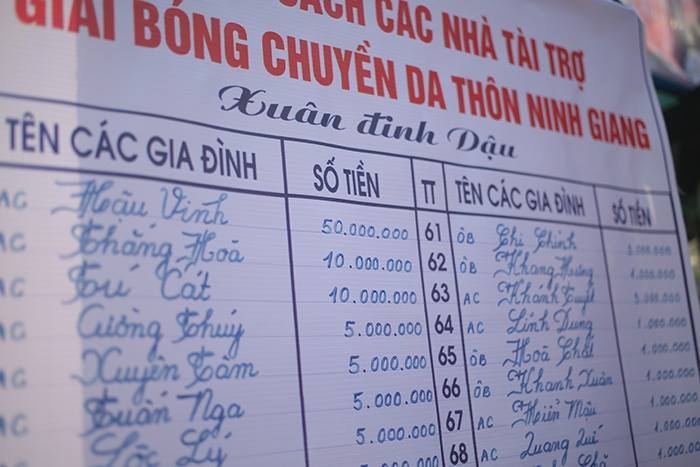 SÁCH CÁC NHÀ TÀI TRỢ
GIẢI BÓNG CHUYỀN DA THÔN NINH GIANG
Xuân đinh Dậu
TÊN CÁC GIA ĐÌNH SỐ TIỀN TT TÊN CÁC GIA ĐÌNH SỐ TIỀN
AC Hậu Vinh 50.000.000 61 ÔB Chi Chinh
AC Thắng Hoà 10.000.000 62 ÔB Khang Hương 1.000.000
AC Tú Cát 10.000.000 63 AC Khánh Tuyết
AC Cường Thúy 5.000.000 64 AC Linh Dung 1.000.000
AC Xuyên Tâm 5.000.000 65 ÔB Hoà Chất 1.000.000
AC Tuấn Nga 5.000.000 66 ÔB Khanh Xuân 1.000.000
AC Lộc Lý 5.000.000 67 AC Miền Mậu 1.000.000
5.000.000 68 AC Quang Quế 1.000.000